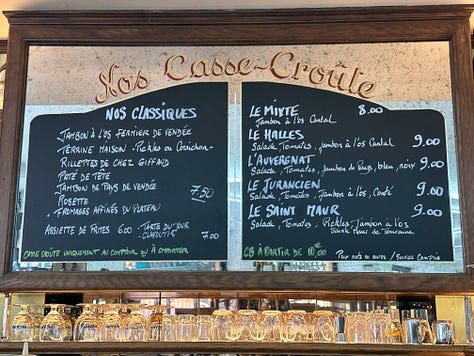 Nos Casse-Croûte
NOS CLASSIQUES
JAMBON À L'OS FERMIER DE VENDÉE
TERRINE MAISON - Pickles ou Cornichon -
RILLETTES DE CHEZ GIFFAUD
PATÉ DE TÊTE
JAMBON DE PAYS DE VENDÉE
ROSETTE
FROMAGES AFFINÉS DU PLATEAU
7,50
ASSIETTE DE FRITES 6.00
- TARTE DU JOUR
CLAFOUTIS
7.00
CASSE CROÛTE UNIQUEMENT AU COMPTOIR, OU À EMPORTER
LE MIXTE 8.00
Jambon à l'os Cantal
LE HALLES
Salade, Tomates, jambon à l'os Cantal 9.00
L'AUVERGNAT
Salade, Tomates, jambon de Pays, bleu, noix 9.00
LE JURANCIEN
Salade, Tomates, Jambon à l'os, Conté 9.00
LE SAINT MAUR
Salade, Tomates, Pickles, Jambon à l'os 9.00
Sainte Maure de Touraine
CB À PARTIR DE 10,00€
Prix nets en euros / Service Compris